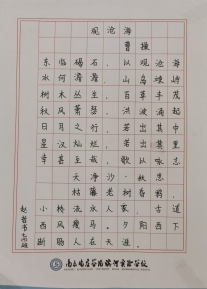 观沧海
曹操
东临碣石，以观沧海。
水何澹澹，山岛竦峙。
树木丛生，百草丰茂。
秋风萧瑟，洪波涌起。
日月之行，若出其中；
星汉灿烂，若出其里。
幸甚至哉，歌以咏志。
天净沙·秋思
枯藤老树昏鸦，
小桥流水人家，古道
西风瘦马。夕阳西下，
断肠人在天涯。
实验学校